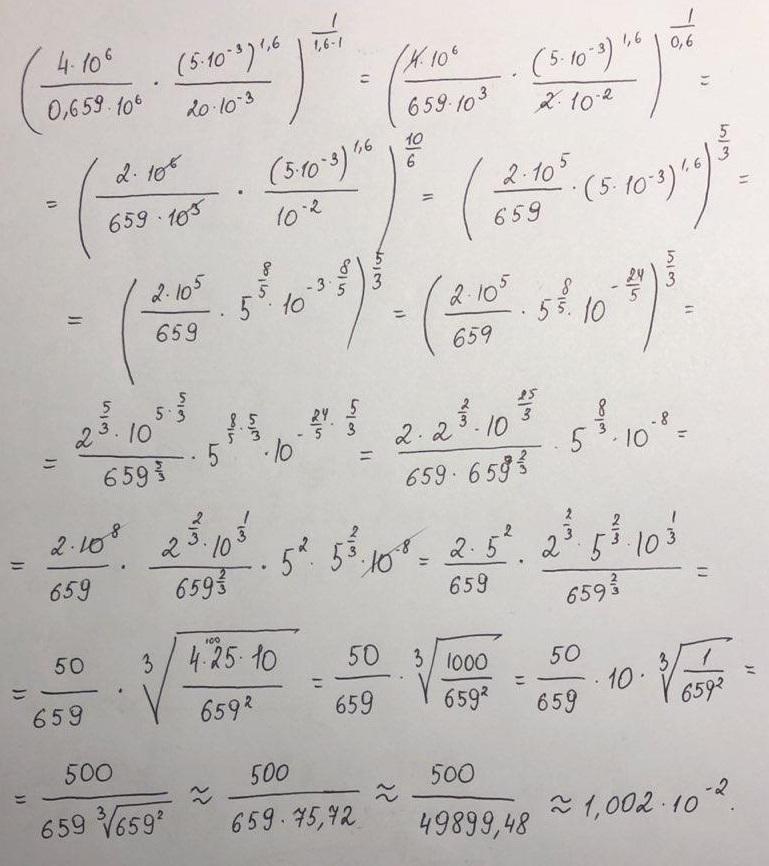 (4·10^6 / 0,659·10^6 · (5·10^-3)^1,6 / 20·10^-3)^(1/(1,6-1)) = (4·10^6 / 659·10^3 · (5·10^-3)^1,6 / 2·10^-2)^(1/0,6) =
= (2·10^6 / 659·10^3 · (5·10^-3)^1,6 / 10^-2)^(10/6) = (2·10^5 / 659 · (5·10^-3)^1,6)^(5/3) =
= (2·10^5 / 659 · 5^(8/5) · 10^(-3·8/5))^(5/3) = (2·10^5 / 659 · 5^(8/5) · 10^(-24/5))^(5/3) =
= 2^(5/3)·10^(5·5/3) / 659^(5/3) · 5^(8/5·5/3) · 10^(-24/5·5/3) = 2·2^(2/3)·10^(25/3) / 659·659^(2/3) · 5^(8/3) · 10^-8 =
= 2·10^8 / 659 · 2^(2/3)·10^(1/3) / 659^(2/3) · 5^2 · 5^(2/3) · 10^-8 = 2·5^2 / 659 · 2^(2/3)·5^(2/3)·10^(1/3) / 659^(2/3) =
= 50 / 659 · ∛(4·25·10 / 659^2) 100 = 50 / 659 · ∛(1000 / 659^2) = 50 / 659 · 10 · ∛(1 / 659^2) =
= 500 / 659 ∛659^2 ≈ 500 / 659·75,72 ≈ 500 / 49899,48 ≈ 1,002·10^-2.